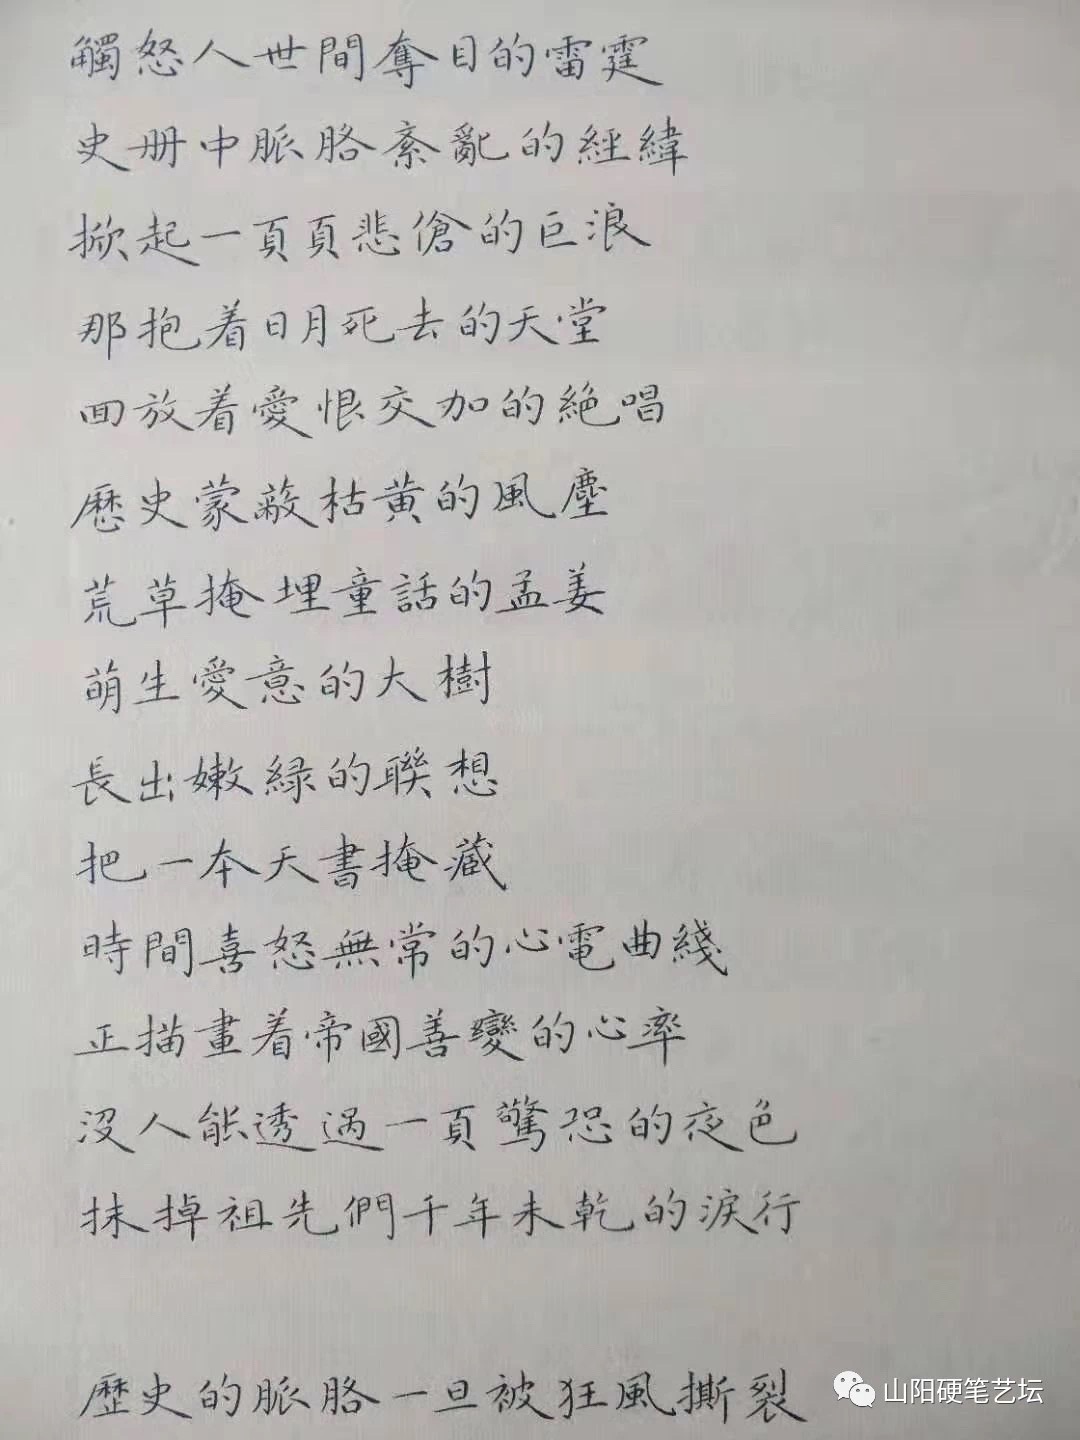 觸怒人世間奪目的雷霆
史册中脈胳紊亂的經緯
掀起一頁頁悲傖的巨浪
那抱着日月死去的天堂
回放着愛恨交加的絶唱
歷史蒙蔽枯黄的風塵
荒草掩埋童話的孟姜
萌生愛意的大樹
長出嫩緑的聯想
把一本天書掩藏
時間喜怒無常的心電曲綫
正描畫着帝國善變的心率
没人能透過一頁驚恐的夜色
抹掉祖先們千年未乾的淚行
歷史的脈胳一旦被狂風撕裂
山阳硬笔艺坛